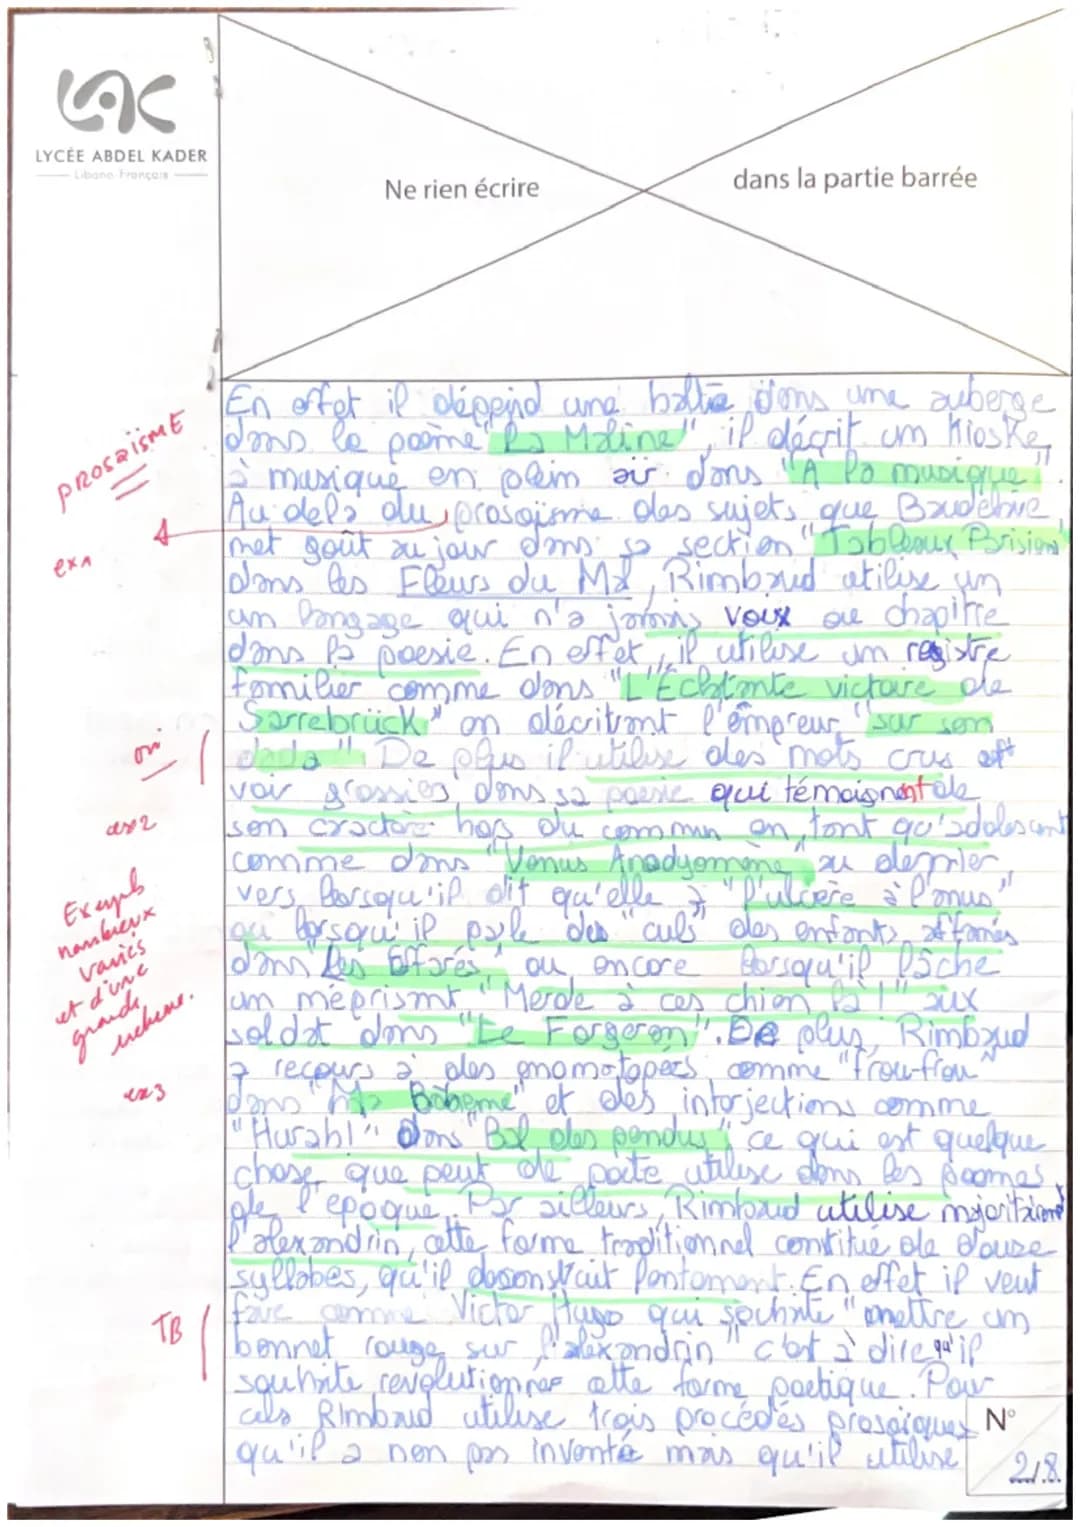 LAC
LYCÉE ABDEL KADER
Libano-Français
Ne rien écrire
dans la partie barrée
En effet il dépeind une baltia dans une auberge
dans le poème "La Maline", il décrit um Kioske
prosaïsmE
à musique en plein air dans "A la musique"
Au delà du prosaïsme des sujets que Baudelaire
ex1
met goût au jour dans sa section "Tableaux Parisiens
dans les Fleurs du Mal, Rimbaud utilise un
um langage qui n'a jamais voix au chapitre
dans la poesie. En effet, il utilise um registre
familier comme dans "L'Eclatante victoire de
Sarrebrück" en décrivant l'empreur "sur son
oui
dada". De plus il utilise des mots crus
voir grossiers dans sa poesie qui témoignent de
ex2
son cractère hors du commun en tant qu'adolescent
comme dans "Venus Anadyomène" au dernier
vers lorsqu'il dit qu'elle a "l'ulcère à l'anus"
Exemples
nombreux
variés
et d'une
grande
richesse.
ou lorsqu'il parle des "culs" des enfants affamés
dans "Les Effarés" ou encore lorsqu'il lâche
um méprisant "Merde à ces chien là!" aux
soldat dans "Le Forgeron". De plus, Rimbaud
a recours à des onomatopées comme "frou-frou"
ex3
dans "Ma Bohème" et des interjections comme
"Hurah!" dans "Bal des pendus", ce qui est quelque
chose que peut de poète utilise dans les poemes
de l'epoque. Par ailleurs, Rimbaud utilise majoritairement
l'alexandrin, cette forme traditionnel constitué de douze
syllabes, qu'il deconstruit lentement. En effet il veut
faire comme Victor Hugo qui souhaite "mettre um
TB
bonnet rouge sur l'alexandrin" c'est à dire qu'il
souhaite revolutionner cette forme poetique. Pour
cela Rimbaud utilise trois procédés prosaïques
qu'il a non pas inventé mais qu'il utilise
N°
2/8.